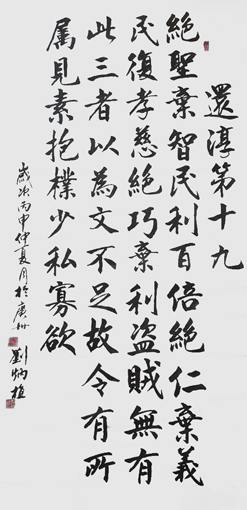 還淳第十九
絕聖棄智民利百倍絕仁棄義
民復孝慈絕巧棄利盜賊無有
此三者以為文不足故令有所
屬見素抱樸少私寡欲
歲次丙申仲夏月於廣州 劉炳植